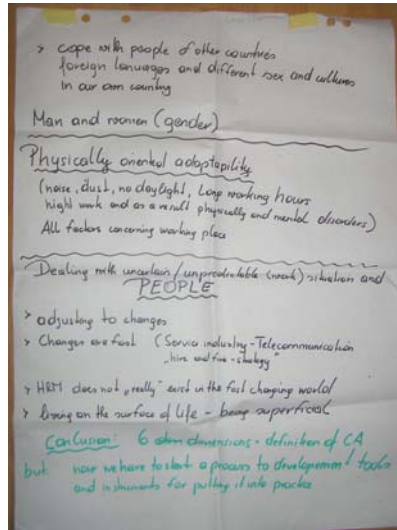 > cope with people of other countries
foreign languages and different sex and cultures
in our own country
Man and women (gender)
Physically oriented adaptability
(noise, dust, no daylight, Long working hours
night work and as a result physically and mental disorders)
All factors concerning working place
Dealing with uncertain / unpredictable (work) situation and
PEOPLE
> adjusting to changes
> Changes are fast (Service industry - Telecommunication
"hire and fire - strategy"
> HRM does not "really" exist in the fast changing world
> living on the surface of life - being superficial
Conclusion: 6 dimensions - definition of CA
but: now we have to start a process to developement tools
and instruments for putting it into practice